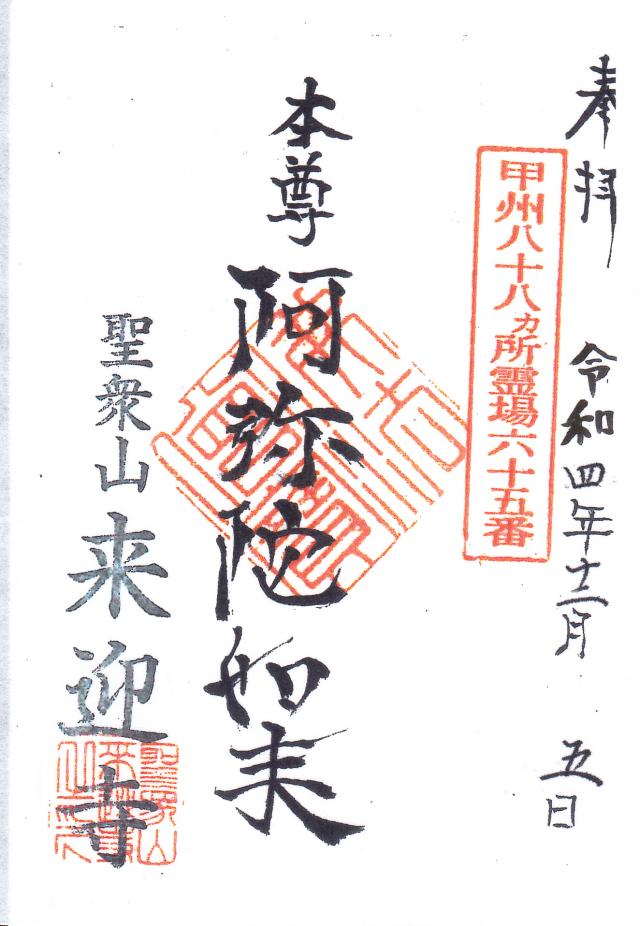 奉拝
令和四年十二月
五日
甲州八十八カ所霊場六十五番
本尊
阿弥陀如来
聖衆山
来迎寺